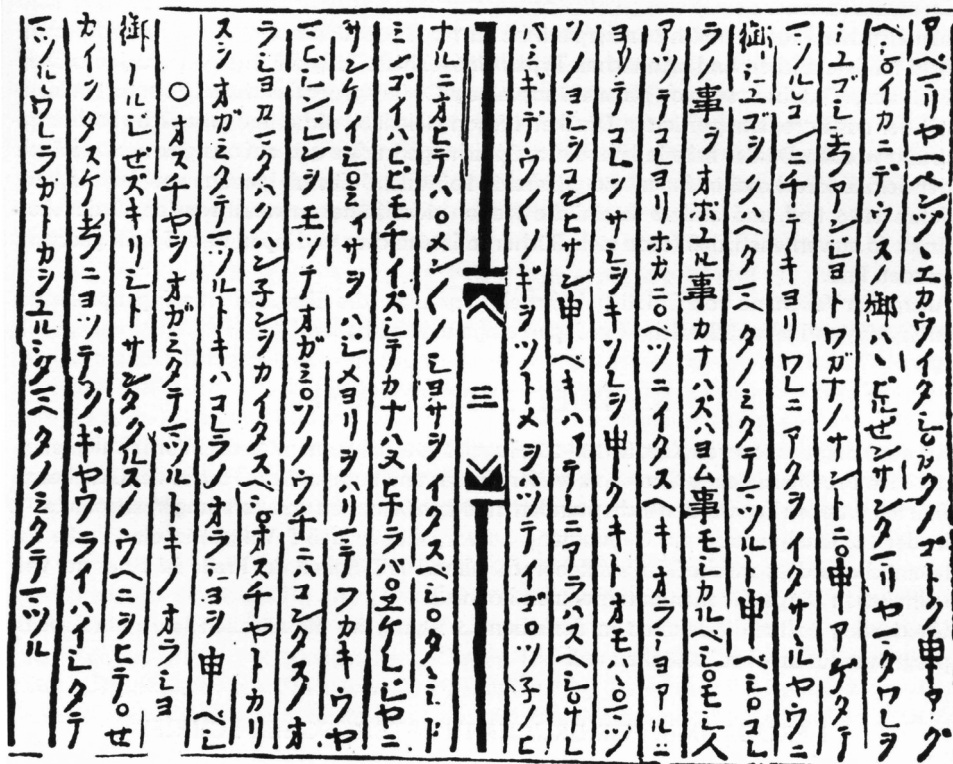 アベマリヤ一ペンツヽエカウイタシ○カクノゴトク申アグ
ベシ○イカニデウスノ御ハヽビルゼンサンタマリヤマタワレヲ
シユゴシ玉フアンジヨトワガナノサントニ○申アゲタテ
マツルコンニチテキヨリワレニアタヲイタサヾルヤウニ
御シユゴシ玉ハヘタマヘタノミタテマツルト申ベシ○コレ
ラノ事ヲオボユル事カナハズハヨム事モシカルベシ○モシ人
アツテコレヨリホカニ○ベツニイタスヘキオラシヨアルニ
ヨツテコレヲサシヲキツレヲ申タキトオモハヾ○マヅ
ソノヨシヲコンヒサン申ベキハアテレニアラハスヘシ○ナレ
バミギデウ〱ノギヲツトメヲハツテイゴ○ツ子ノヒ
三
ナルニオヒテハ○メン〱ノシヨサヲイタスベシ○タヾシド
ミンゴイハヒビモチイズシテカナハヌヒナラバ○ヱケレジヤニ
サンケイシ○ミイサヲハジメヨリヲハリマデフカキウヤ
マヒシンジンヲモツテオガミ○ソノウチニハコンタスノオ
ラシヨカマタハクハン子ンヲカイタスベシ○オスチヤトカリ
スヲオガミタテマツルトキハコレラノオラシヨヲ申ベシ
○オスチヤヲオガミタテマツルトキノオラシヨ
御アルジゼズキリシトサンタクルスノウヘニヲヒテ○セ
カイヲタスケ玉フニヨツテソノギヤウヲライハイシタテ
マツル○ワレラガトガヲユルシタマヘタノミタテマツル